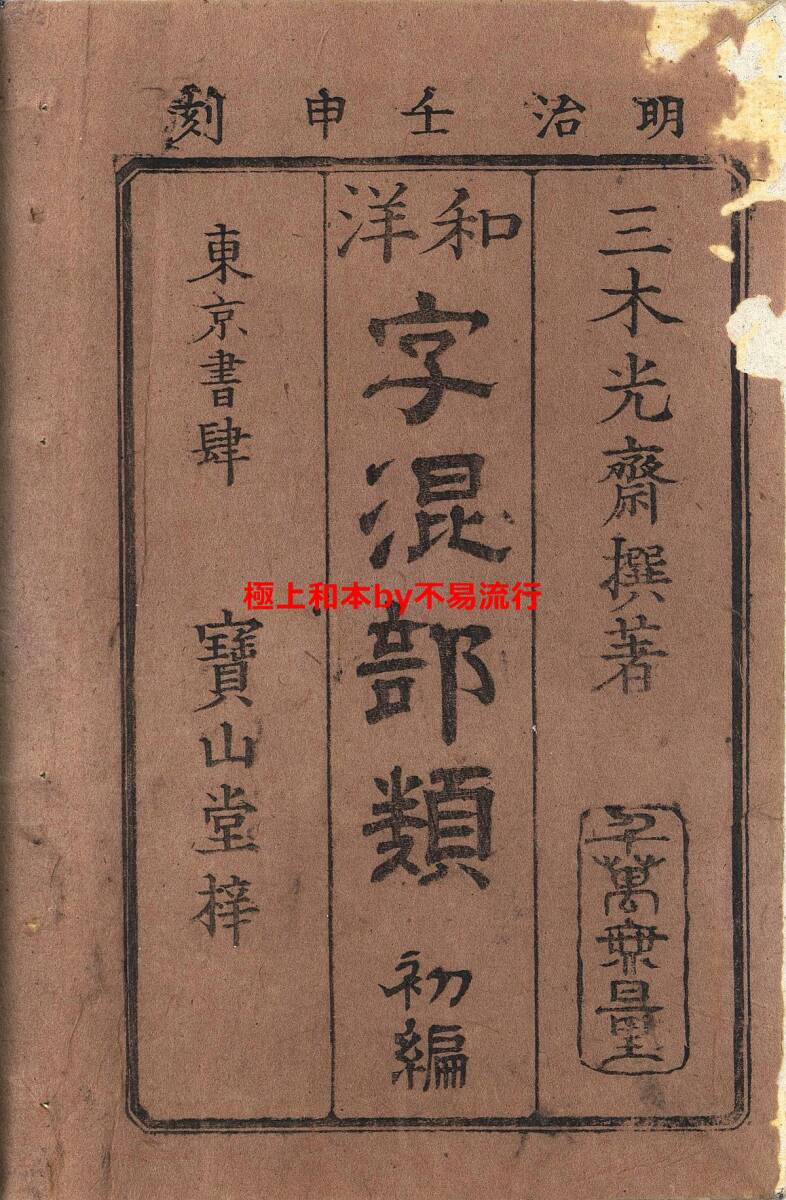 明治壬申刻
三木光齋撰著
千萬無量
和洋
字混部類
初編
東京書肆 寶山堂梓
極上和本by不易流行